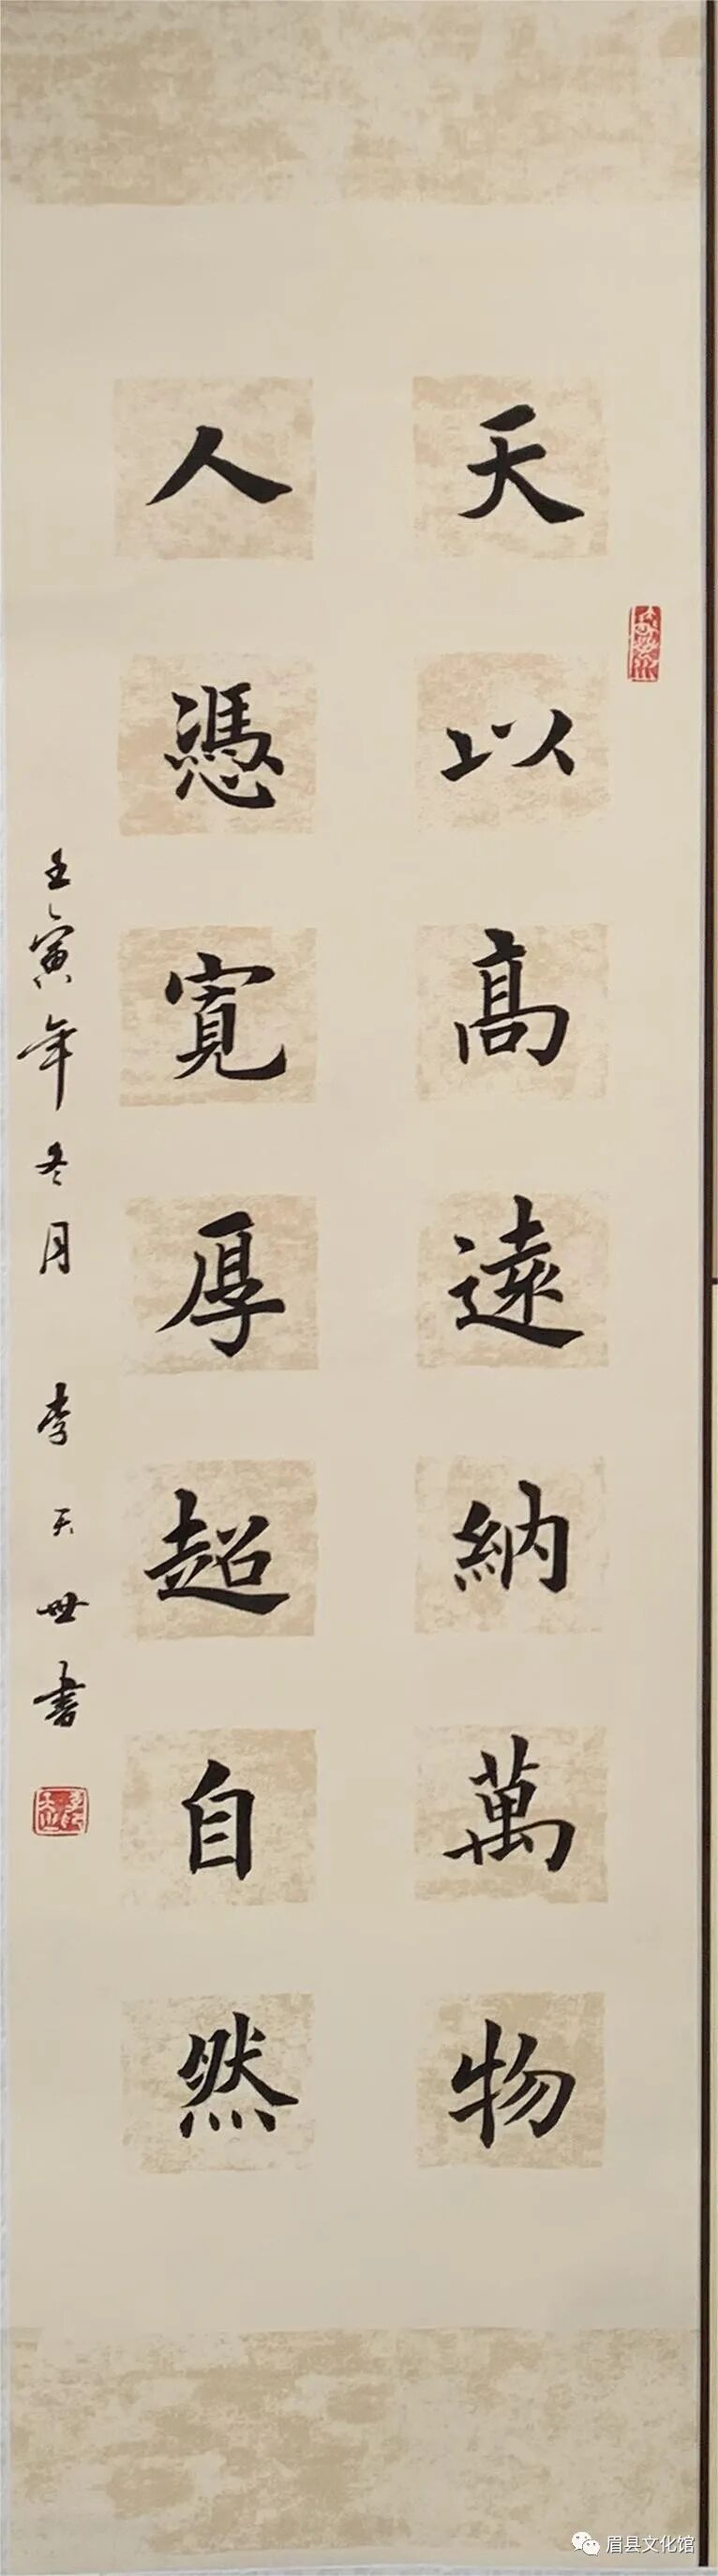 天以高遠納萬物
人憑寬厚超自然
壬寅年冬月 李天世書
眉县文化馆